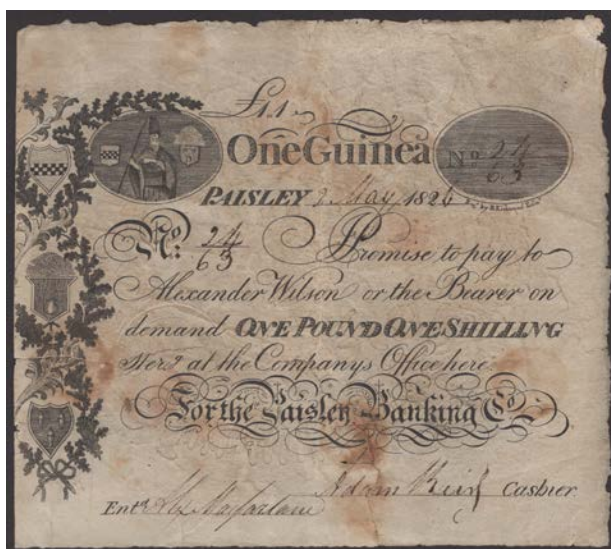 £1,,1,,
One Guinea
No 24
63
PAISLEY 2 May 1826
No: 24
63
Promise to pay to
Alexander Wilson or the Bearer on
demand ONE POUND ONE SHILLING
Ster.g at the Companys Office here:
For the Paisley Banking Co.
Adam Keir Cashier
Entd. Macfarlane